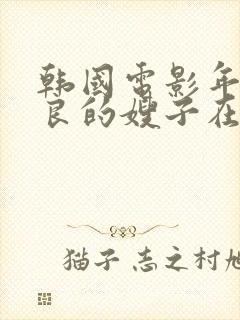 韩國電影年
良的嫂子在
猫子 志之村旭